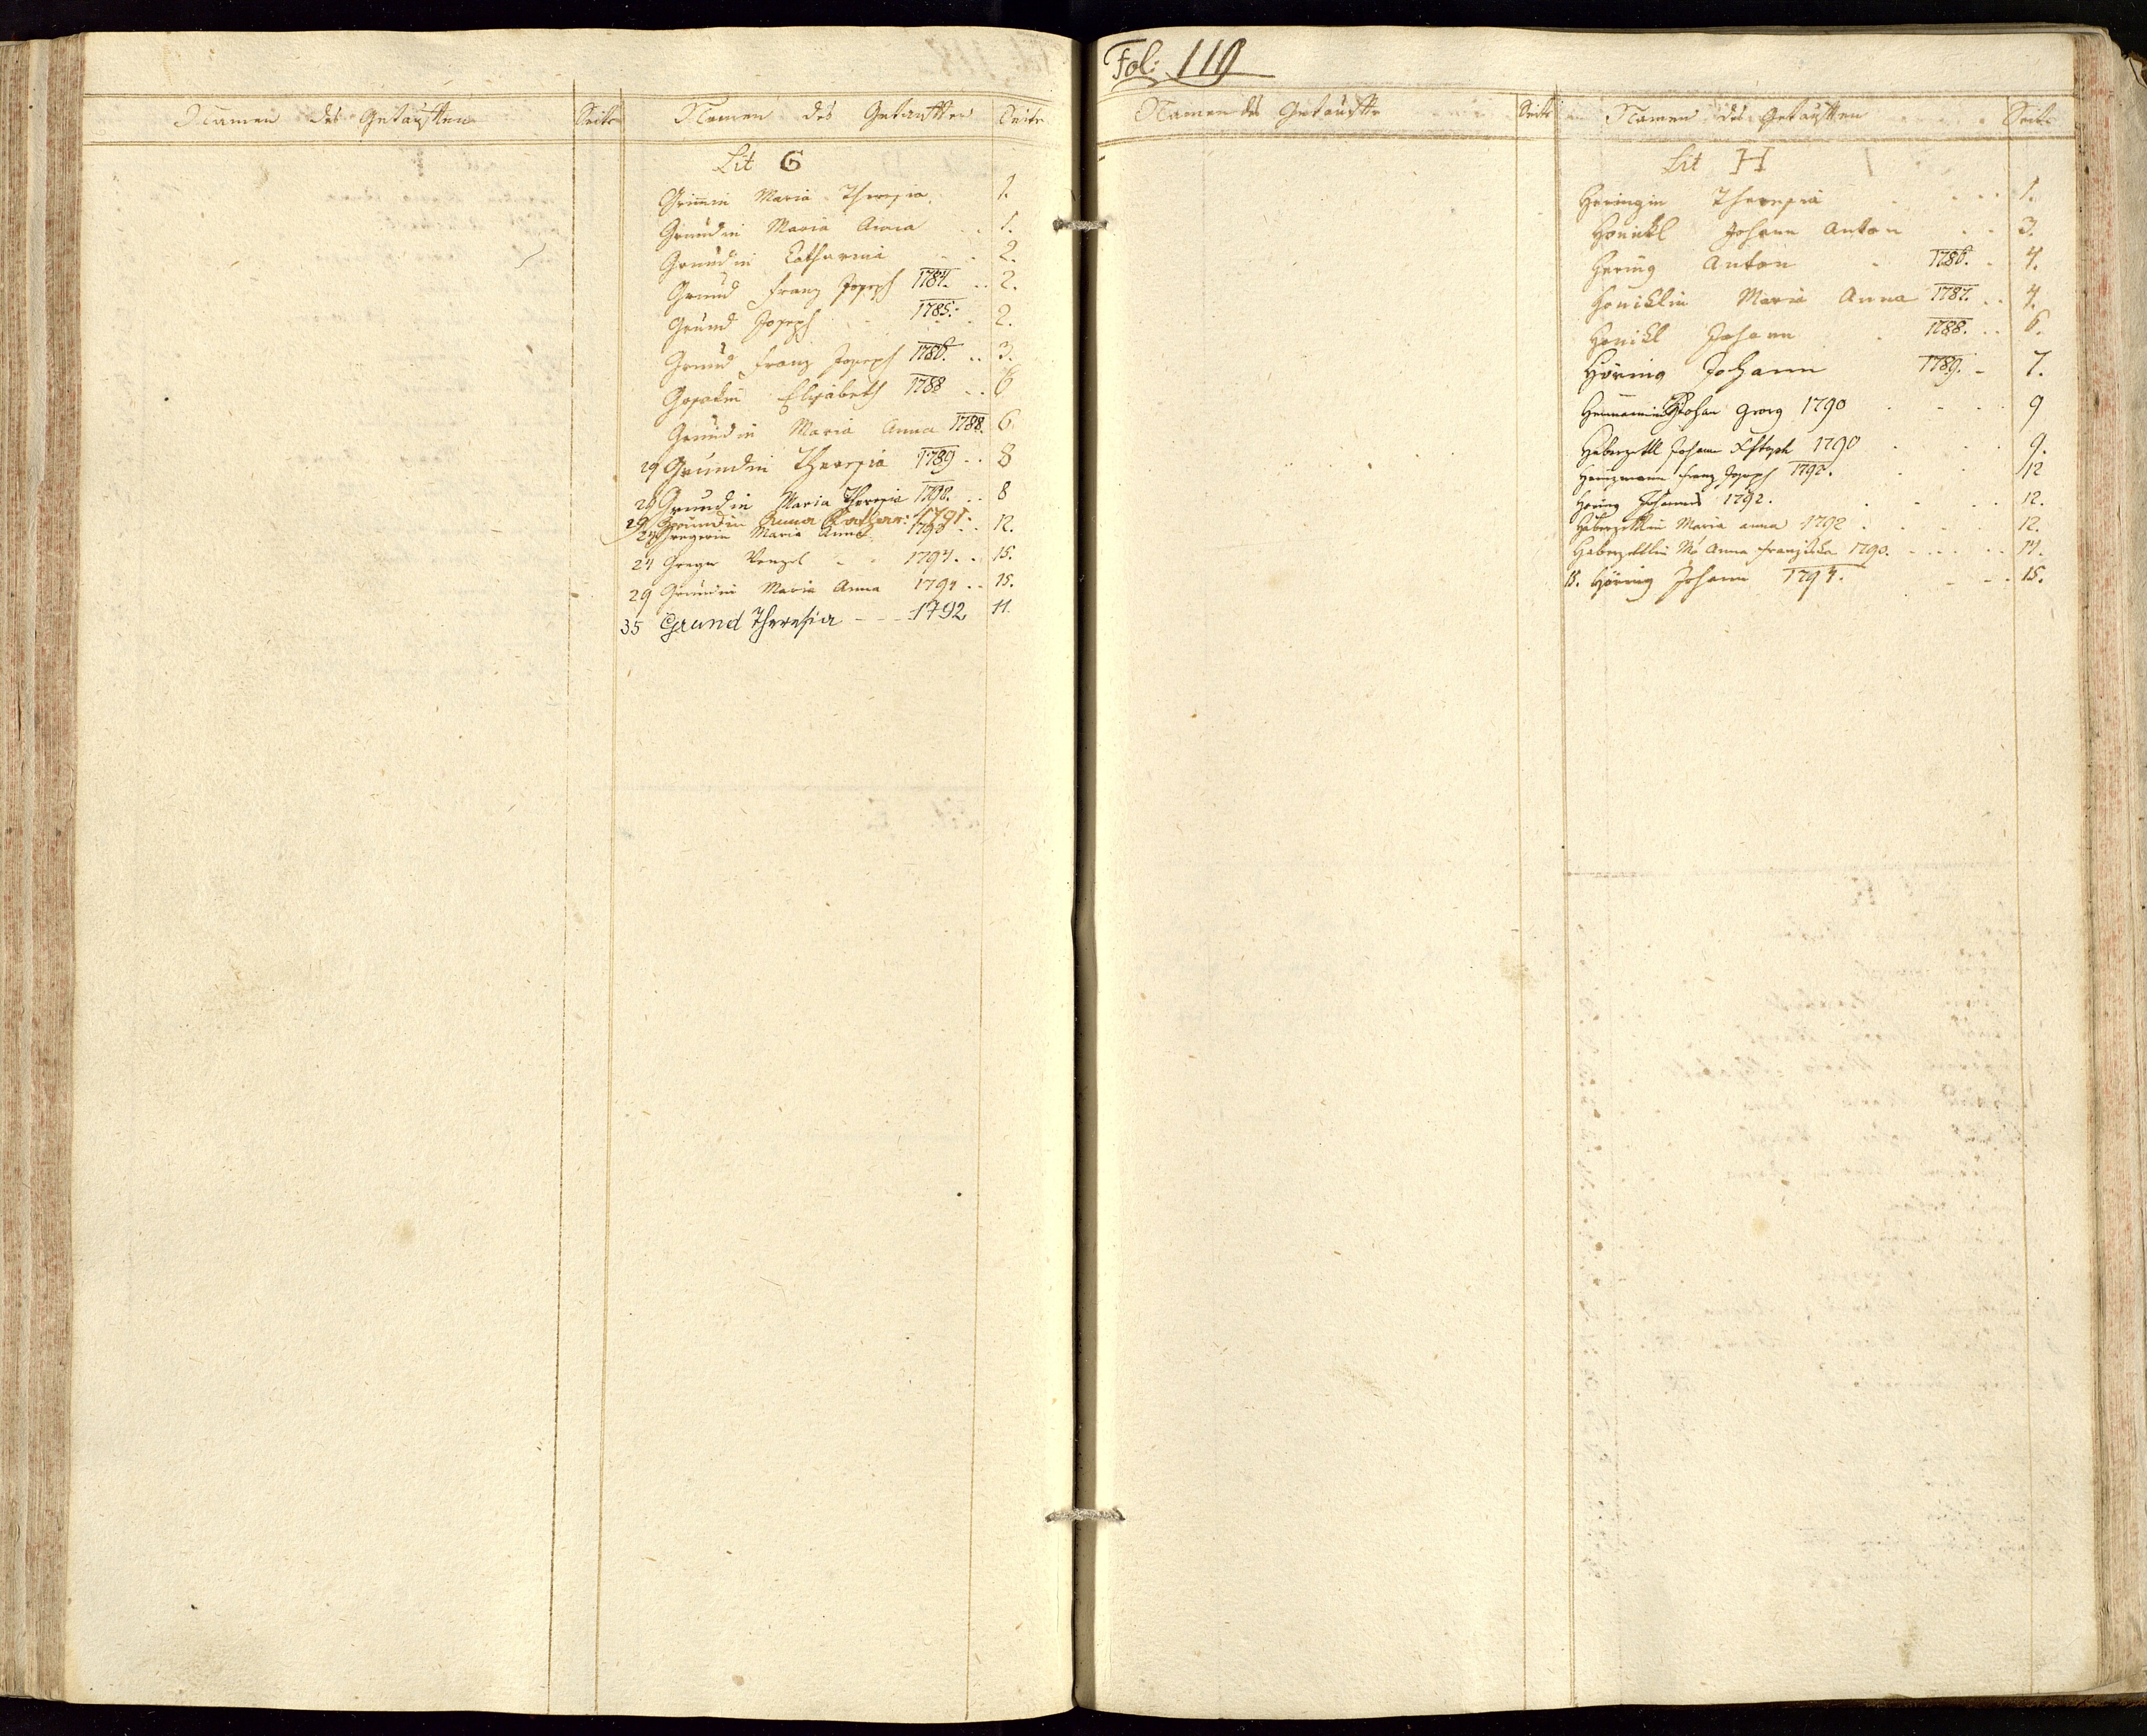 Namen des Getauften Seite Namen des Getauften Seite
Lit G
Grimin Maria Theresia. 1.
Grundin Maria Anna . . 1.
Grundin Catharina . . 2.
Grund Franz Joseph 1784. . . 2.
Grund Joseph . . 1785. . 2.
Grund Franz Joseph 1786. . . 3.
Elisabeth 1788 . . 6
Grundin Maria Anna 1788. 6.
29 Grundin Theresia 1789 . . 8
29 Grundin Maria Theresia 1790. . . 8
29 Grundin Anna Kathar: 1791.
24 Gregerin Maria Anna 1793 . . 12.
24 Greger Wenzel . . 1794. . . 15.
29 Grundin Maria Anna 1794 . . 15.
35 Grund Theresia - - - 1792 11.
Fol: 119
Namen des Getaufte Seite Namen des Getauften Seite
Lit H
Heringin Theresia . . . . 1.
Honickl Johann Anton . . 3.
Hering Anton . 1786. . 4.
Honicklin Maria Anna 1787. . . 4.
Honickl Johann . 1788. . . 6.
Höring Johann 1789. - 7.
Johan Georg 1790 . . . 9
Haberzettl Johann 1790 . . . 9.
Heinzmann Franz Joseph 1792. . . 12
Höring Johannes 1792. . . . 12.
Haberzettlin Maria anna 1792 . . . . 12.
Haberzettlin Mª Anna Franziska 1790. . . . . . 14.
15. Höring Johann 1794. - - . 15.